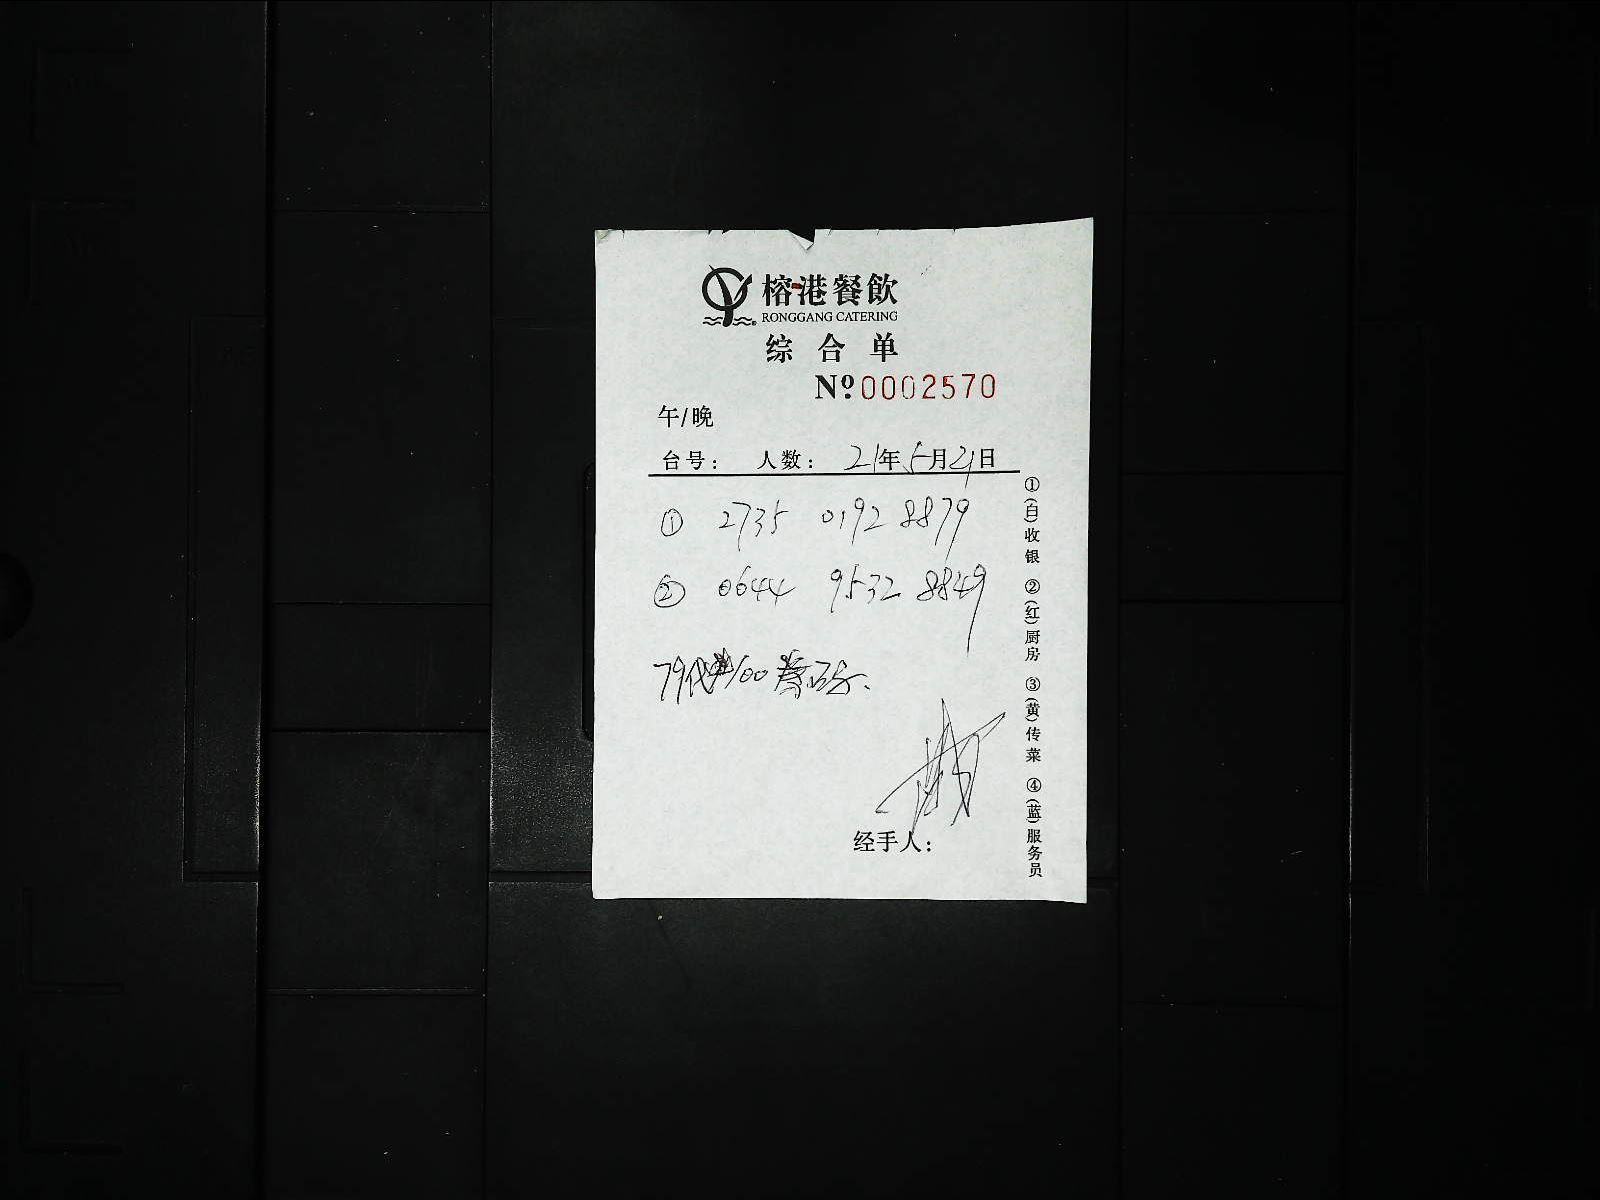 榕港餐飲
RONGGANG CATERING
综合单
№0002570
午/晚
台号： 人数： 21年5月21日
① 2735 0192 8879
② 0644 9532 8849
79代100券码
经手人：
①(白)收银 ②(红)厨房 ③(黄)传菜 ④(蓝)服务员